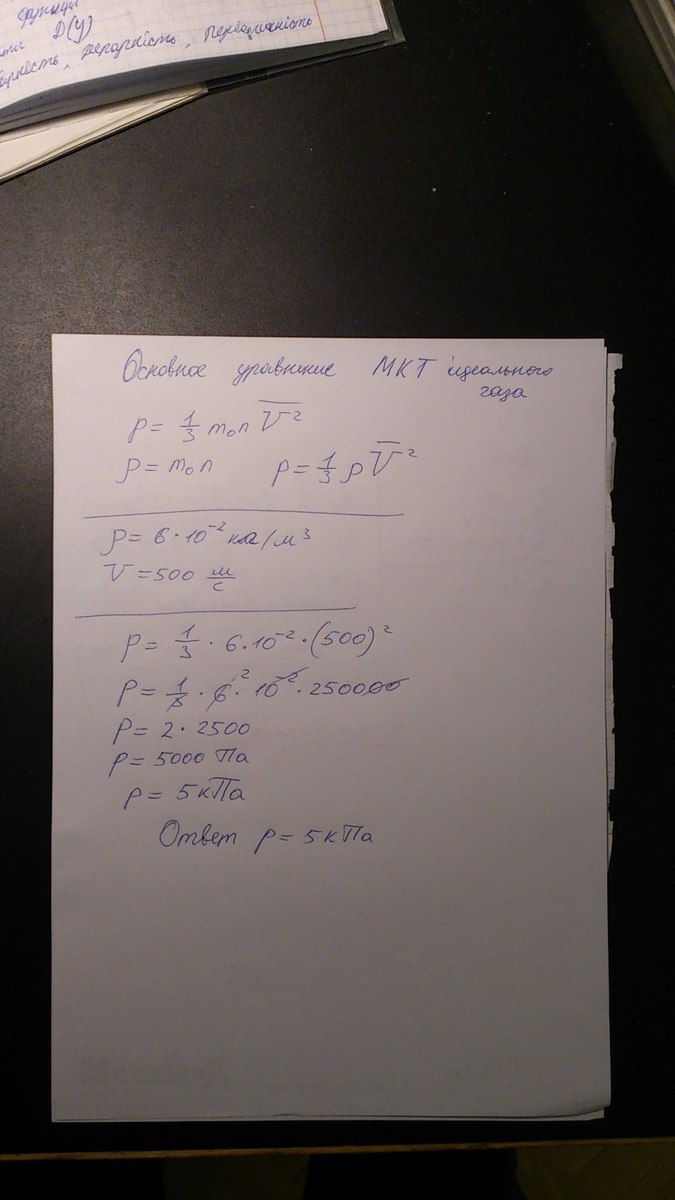 функції
D(y)
парність, періодичність
Основное уравнение МКТ идеального
газа
p = 1/3 m₀n V̅²
ρ = m₀n p = 1/3 ρ V̅²
ρ = 6·10⁻² кг/м³
V = 500 м/с
p = 1/3 · 6·10⁻² · (500)²
p = 1/3 · 6² · 10⁻² · 250000
p = 2·2500
p = 5000 Па
p = 5кПа
Ответ p = 5кПа